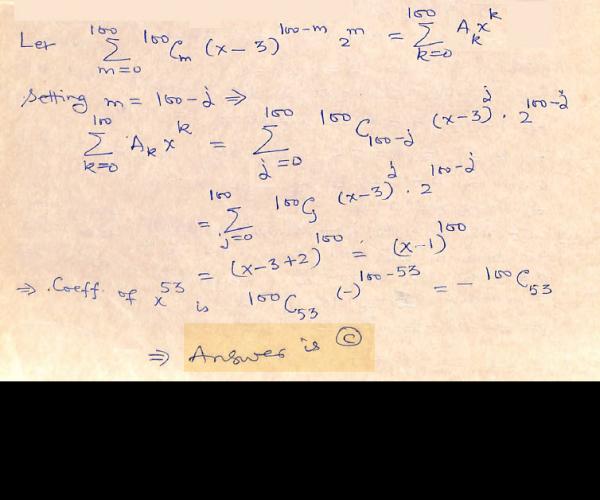 Let ¹⁰⁰∑ₘ₌₀ ¹⁰⁰Cₘ (x-3)¹⁰⁰⁻ᵐ 2ᵐ = ¹⁰⁰∑ₖ₌₀ Aₖxᵏ
Setting m = 100-j ⇒
¹⁰⁰∑ₖ₌₀ Aₖxᵏ = ¹⁰⁰∑ⱼ₌₀ ¹⁰⁰C₁₀₀₋ⱼ (x-3)ʲ · 2¹⁰⁰⁻ʲ
= ¹⁰⁰∑ⱼ₌₀ ¹⁰⁰Cⱼ (x-3)ʲ · 2¹⁰⁰⁻ʲ
= (x-3+2)¹⁰⁰ = (x-1)¹⁰⁰
⇒ Coeff. of x⁵³ is ¹⁰⁰C₅₃ (-)¹⁰⁰⁻⁵³ = - ¹⁰⁰C₅₃
⇒ Answer is Ⓒ